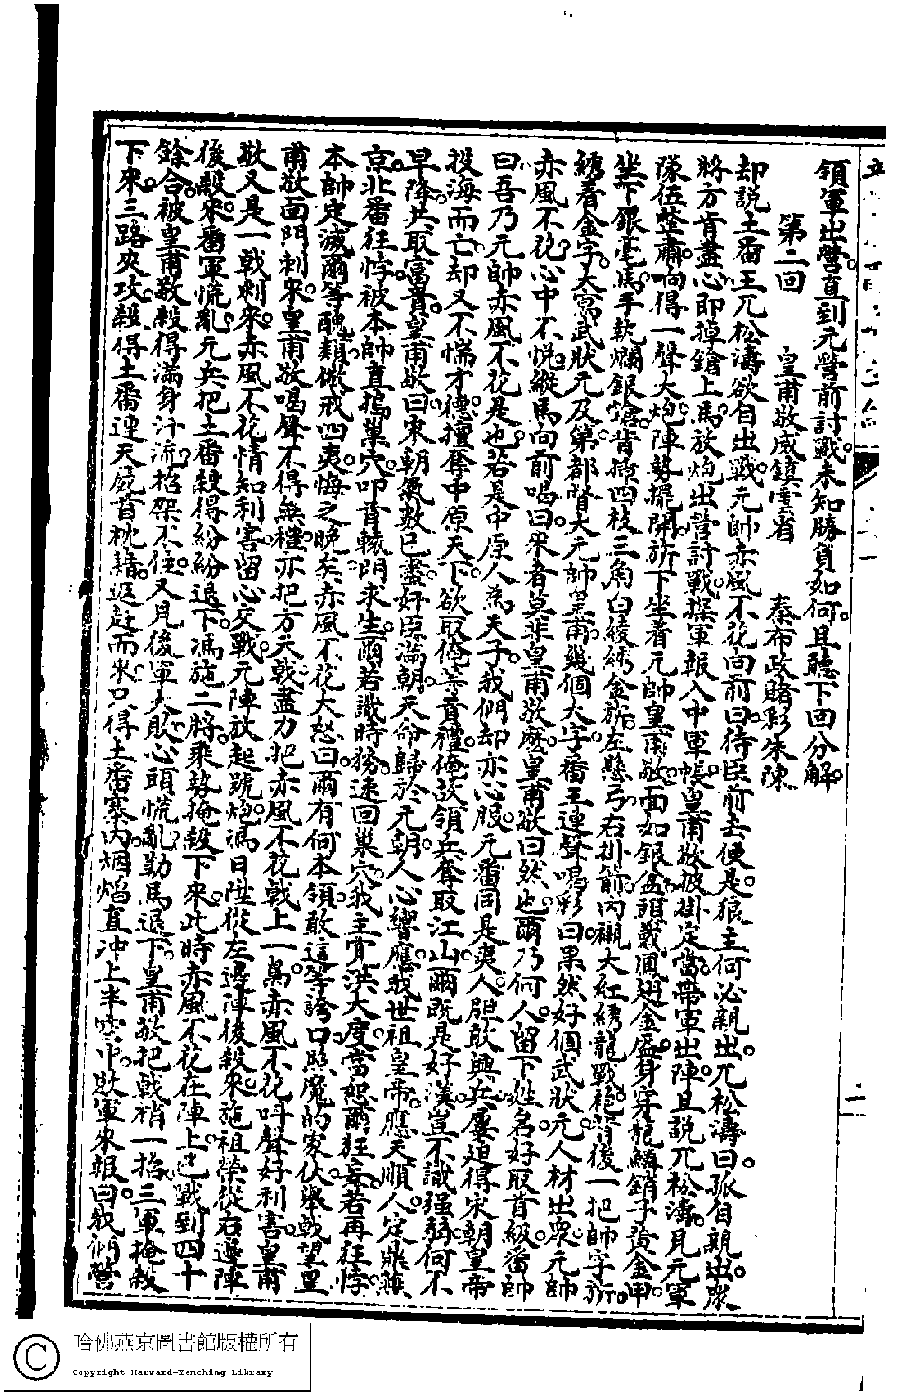 領軍出營直到元營前討戰未知勝負如何且聽下回分解
第二回　皇甫敬威鎮雲省　秦布政賭彩朱陳
却說土番王兀松濤欲自出戰元帥赤風不花向前曰待臣前去便是狼主何必親出兀松濤曰孤自親出衆
將方肯盡心即掉鎗上馬放炮出營討戰探軍報入中軍帳皇甫敬披掛定當帶軍出陣且說兀松濤見元軍
隊伍整肅响得一聲大炮陣勢擺開旂下坐着元帥皇甫敬面如銀盆頭戴鳳翅金盔身穿龍鱗銷子黃金甲
坐下銀毫馬手執爛銀鎗背揷四枝三角白綾綉金旂左懸弓右掛箭內襯大紅綉龍戰袍背後一把帥字旂
綉着金字大寫武狀元及第都督大元帥皇甫幾個大字番王連聲喝彩曰果然好個武狀元人材出衆元帥
赤風不花心中不悅縱馬向前喝曰來者莫非皇甫敬麽皇甫敬曰然也爾乃何人留下姓名好取首級番帥
曰吾乃元帥赤風不花是也若是中原人為天子我們却亦心服元番同是夷人胆敢興兵屢迫得宋朝皇帝
投海而亡却又不惴才德擅奪中原天下欲取俺等首禮俺故領兵奪取江山爾既是好漢豈不識强弱何不
早降共取富貴皇甫敬曰宋朝氣数已盡奸臣滿朝天命歸於元朝人心響應我世祖皇帝應天順人定鼎燕
京北番狂悖被本帥直搗巢穴叩首轅門求生爾若識時務速回巢穴我主寬洪大度當恕爾狂妄若再狂悖
本帥定滅爾等醜類儆戒四夷悔之晚矣赤風不花大怒曰爾有何本領敢這等誇口照魔的家伙舉戟望皇
甫敬面門刺來皇甫敬喝聲不得無禮亦把方天戟盡力把赤風不花戟上一萬赤風不花叫聲好利害皇甫
敬又是一戟刺來赤風不花情知利害留心交戰元陣放起號炮馮日陞從左邊陣後殺來施祖榮從右邊陣
後殺來番軍慌亂元兵把土番殺得紛紛退下馮施二將乘勢掩殺下來此時赤風不花在陣上已戰到四十
餘合被皇甫敬殺得滿身汗流招架不住又見後軍大敗心頭慌亂勒馬退下皇甫敬把戟稍一招三軍掩殺
下來三路夾攻殺得土番連天屍首枕藉返赶而來只得土番寨內烟焰直冲上半空中敗軍來報曰我們營
二
哈佛燕京圖書館版權所有
Copyright Harvard-Yenching Library